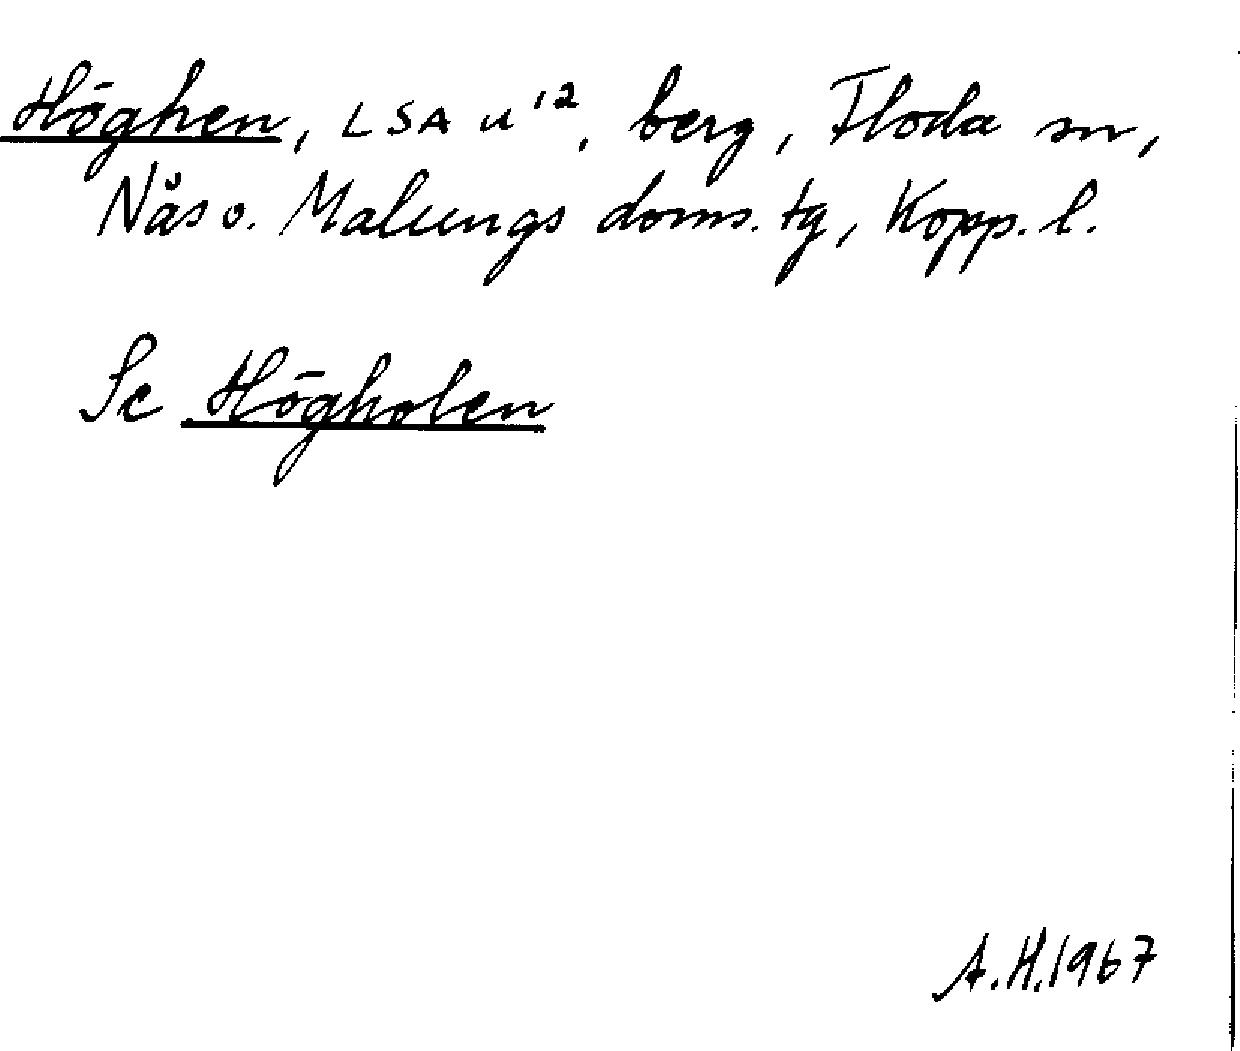 Höghen, LSA u'12, berg, Floda sn,
Nås o. Malungs doms. tg, Kopp. l.
Se Högholen
A.H. 1967